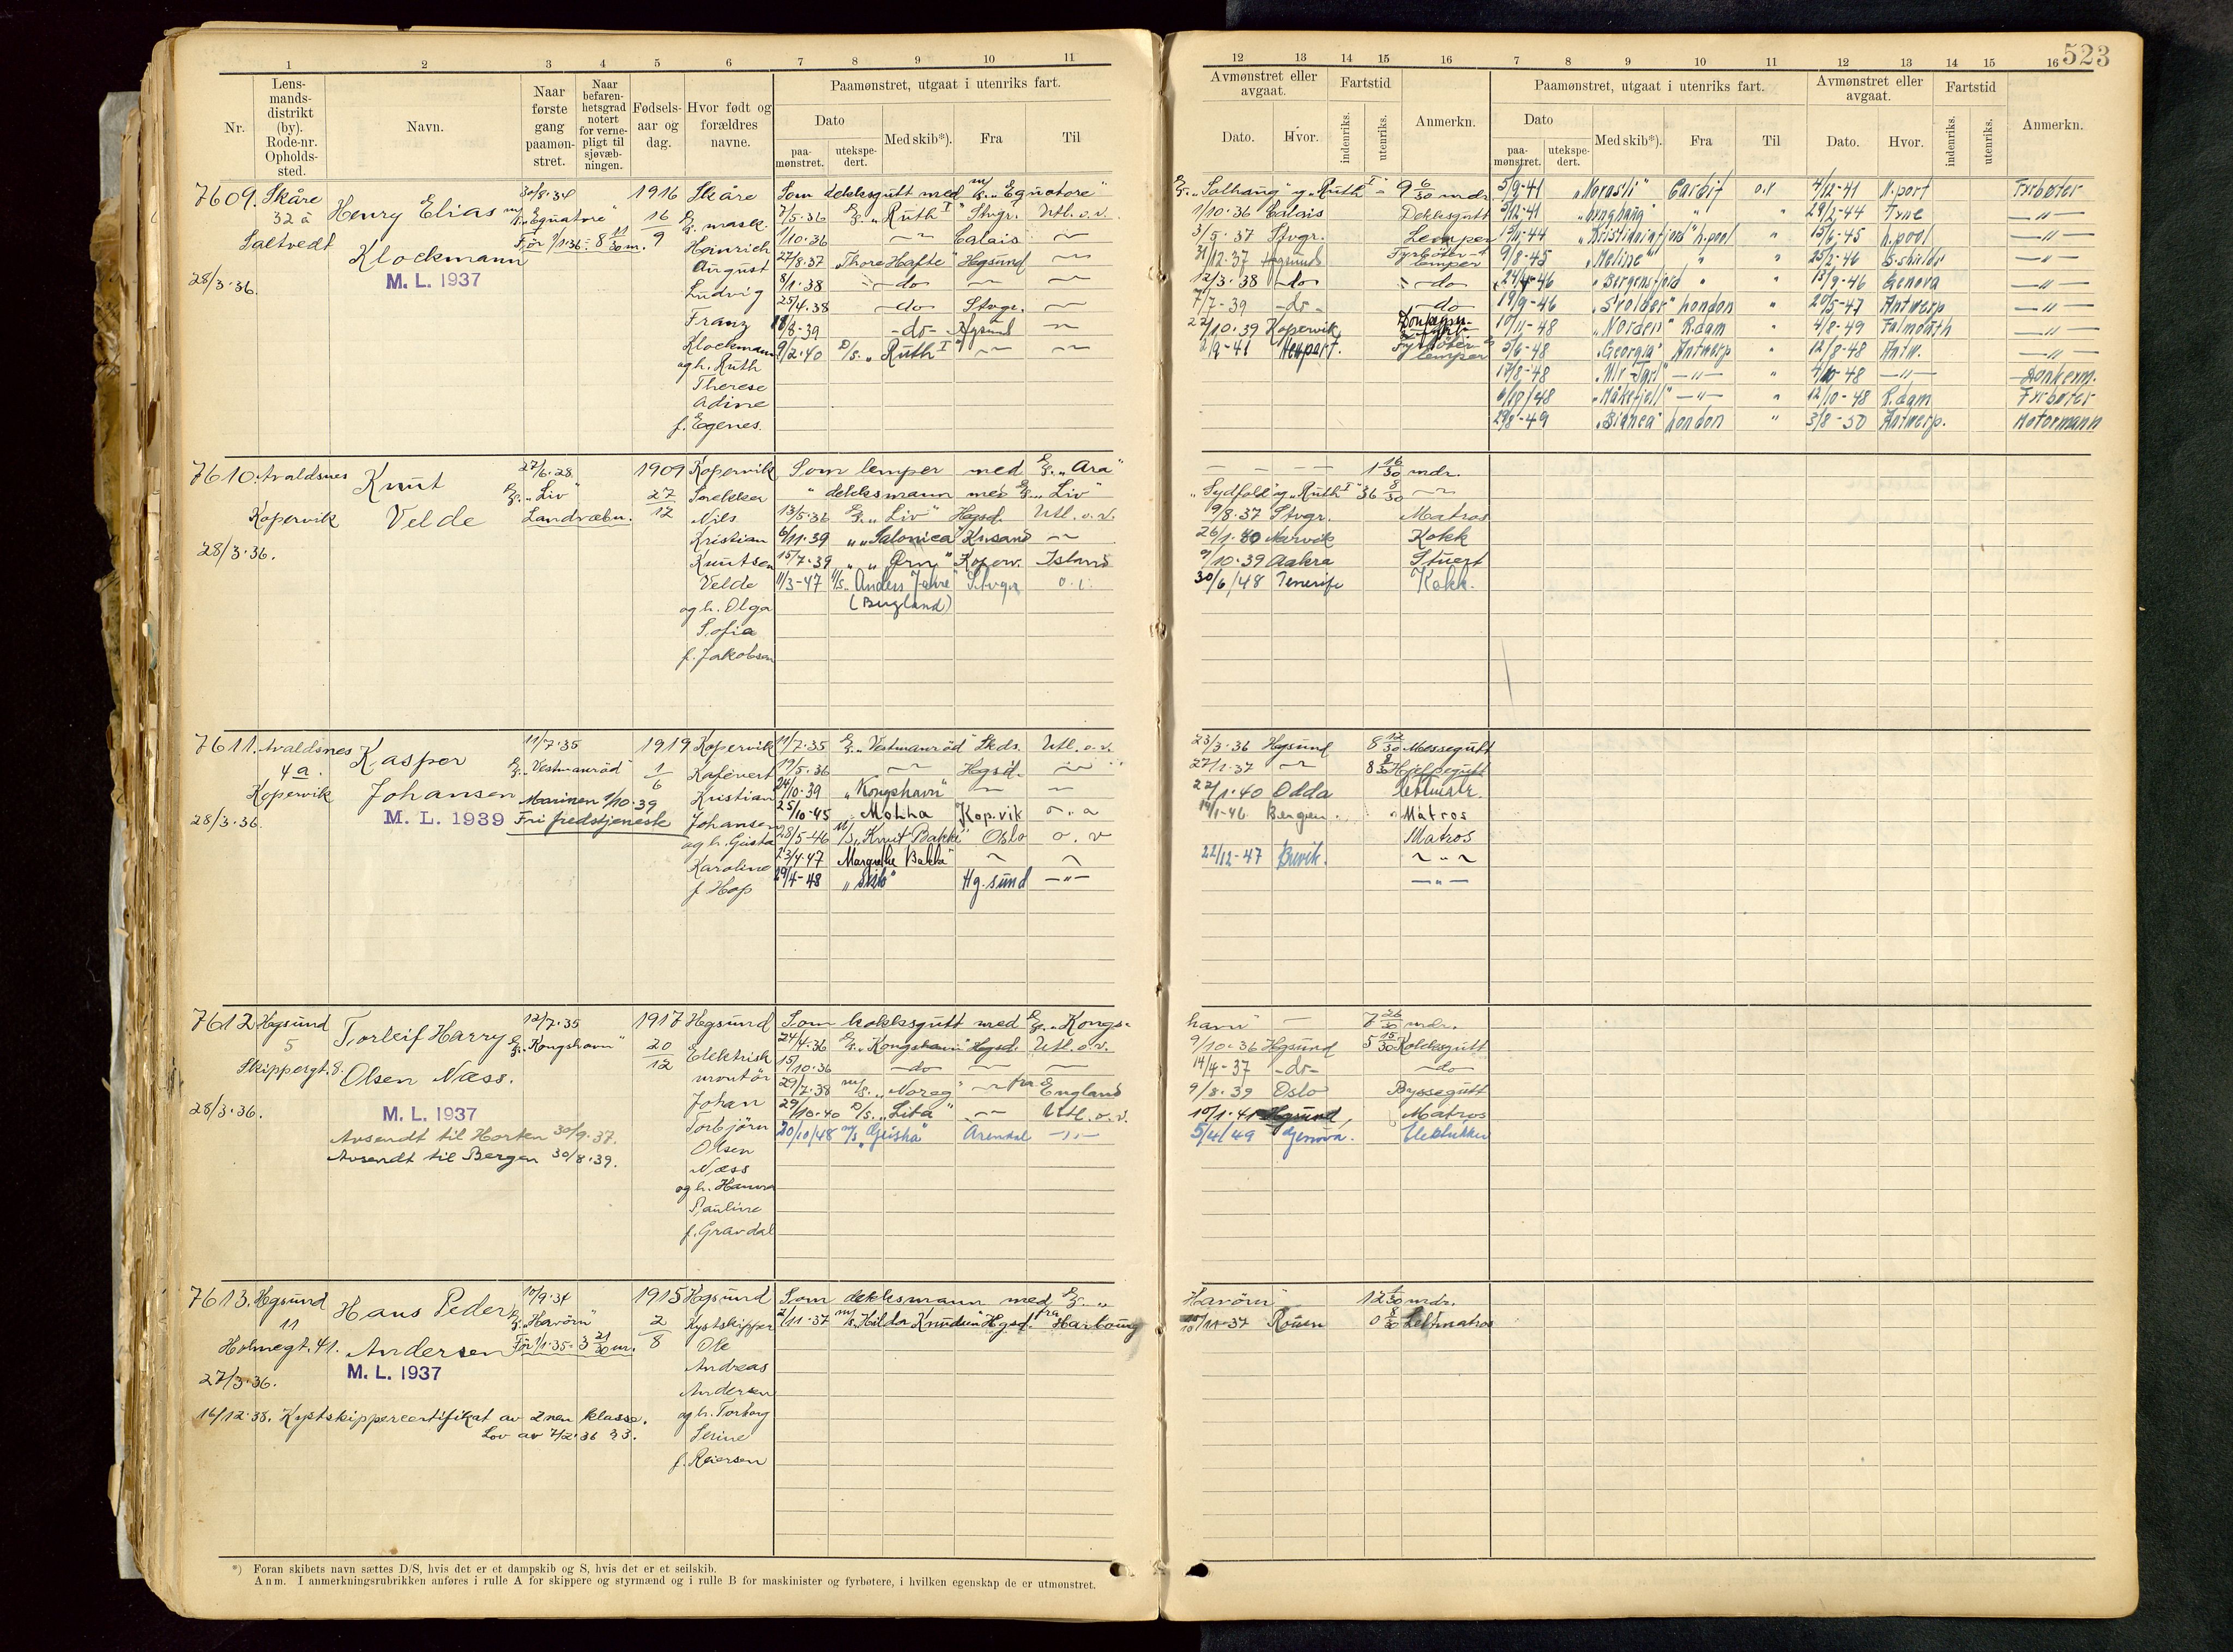 523
1 2 3 4 5 6 7 8 9 10 11
12 13 14 15 16 7 8 9 10 11 12 13 14 15 16
Nr.
Lens-
mands-
distrikt
(by).
Rode-nr.
Opholds-
sted.
Navn.
Naar
første
gang
paamøn-
stret.
Naar
befaren-
hetsgrad
notert
for verne-
pligt til
sjøvæb-
ningen.
Fødsels-
aar og
dag.
Hvor født og
forældres
navne.
Paamønstret, utgaat i utenriks fart.
Dato
paa-
mønstret.
utekspe-
dert.
Med skib*).
Fra
Til
Avmønstret eller
avgaat.
Dato.
Hvor.
Fartstid
indenriks.
utenriks.
Anmerkn.
Paamønstret, utgaat i utenriks fart.
Dato
paa-
mønstret.
utekspe-
dert.
Med skib*).
Fra
Til
Avmønstret eller
avgaat.
Dato.
Hvor.
Fartstid
indenriks.
utenriks.
Anmerkn.
7609. Skåre
32 a
Saltvedt
28/3.36.
Henry Elias
Klockmann
M. L. 1937
30/8.34
"Equatore"
Før 1/1 36 = 8 11/30 m.
1916
16/9
Skåre
mask.
Heinrich
August
Ludvig
Franz
Klockmann
og h. Ruth
Therese
Adine
f. Egenes.
Som dekksgutt med m/s. "Equatore"
7/5.36 "Ruth I" Stvgr. Utl. o. v.
1/10.36 Calais
27/8.37 "Thore Hafte" Hgsund
8/1.38 do
25/4.38 do Stvgr.
18/8-39 do Hgsund
9/2.40 D/s. "Ruth I"
"Solhaug" og "Ruth I" = 9 6/30 mdr.
1/10.36 Calais Dekksgutt
3/5.37 Stvgr. Lemper
31/12.37 Hgsund Fyrbøter-lemper
12/3.38 do do
7/7-39 do do
22/10.39 Kopervik Donkeym.
2/9-41 Newport. Fyrbøter-lemper
5/9-41 "Norasli" Cardif o.v 4/12-41 N.port Fyrbøter
5/12-41 "Lynghaug" " " 29/2-44 Tyne
15/11-44 "Kristianiafjord" L.pool " 15/6-45 L.pool
9/8-45 "Meline" " " 25/2-46 S-shields
24/4-46 "Bergensfjord " " 13/9-46 Genova
19/9-46 "Svolder" London " 20/5-47 Antwerp
10/11-48 "Norden" R.dam " 4/8-49 Falmouth
5/6-48 "Georgia" Antwerp " 12/8-48 Antw.
17/8-48 " 4/10-48 Donkerm.
6/10/48 "Måkefjell" " 12/10-48 R.dam Fyrbøter
29/8-49 "Bianca" London " 3/8-50 Antwerp. Motormann
7610. Avaldsnes
Kopervik
28/3.36.
Knut
Velde
27/6.28
"Liv"
Landvæbn.
1909
27/12
Kopervik
Snekker
Nils
Kristian
Knutsen
Velde
og h. Olga
Sofia
f. Jakobsen
Som lemper med "Ara"
" dekksmann med "Liv"
13/5.36 "Liv" Hgsd. Utl. o. v.
6/11.39 "Salonica" Krsand
15/7.39 "Ørn" Koperv. Island
11/3-47 "Anders Jahre" Stvgr
(Bugland)
1 16/30 mdr.
"Sydfold" og "Ruth I" 36 8/30
9/8.37 Stvgr. Matros
26/1.40 Narvik Kokk
9/10.39 Aakra Stuert
30/6/48 Tenerife Kokk.
7611. Avaldsnes
4 a.
Kopervik
28/3.36.
Kasper
Johansen
M. L. 1939
11/7.35
"Vestmanrød"
Marinen 1/10.39
Fri fredstjeneste
1919
1/6
Kopervik
Kafévert
Kristian
Johansen
og h. Gusta
Karoline
f. Hop
11/7.35 "Vestmanrød" Skds. Utl. o. v.
19/5.36 Hgsd.
24/10.39 "Kongshavn"
25/10-45 Molha Kop.vik
28/5-46 M/S. "Knut Bakke" Oslo o. v
23/4 47 Margrethe Bakke"
29/4-48 "Skib" Hg.sund
23/3.36 Hgsund 8 12/30 Messegutt
27/1.37 8 Hjelpegutt
22/1.40 Odda Lettmatr.
14/1-46 Bergen. Matros
Matros
22/12-47 Brevik.
7612 Hgsund
5
Skippergt. 8.
28/3.36.
Torleif Harry
Olsen Næss.
M. L. 1937
Avsendt til Horten 30/9.37.
Avsendt til Bergen 30/8.39.
12/7.35
"Kongshavn"
1917
20/12
Hgsund
Elektrisk
montör
Johan
Torbjörn
Olsen
Næss
og h. Hanna
Pauline
f. Gravdal
Som kokksgutt med "Kongs-
24/4.36 "Kongshavn" Hgsd. Utl. o. v.
15/10.36 do
29/7.38 m/s. "Noreg" fra England
29/10.40 D/s. "Lita" Utl. o. v.
20/10/48 m/s "Geisha" Arendal
havn" 7 26/30 mdr.
9/10.36 Hgsund 5 15/30 Kokksgutt
14/4-37 do do
9/8.39 Oslo Byssegutt
10/1.41 Hgsund, Matros
5/4/49 Genova.
7613. Hgsund
11
Holmegt. 41.
27/3.36.
Hans Peder
Andersen
M. L. 1937
16/12.38. Kystskippercertifikat av 2nen klasse.
Lov av 7/2.36 § 3.
17/9.34
"Havörn"
Før 1/1.35 = 3 21/30 m.
1915
2/8
Hgsund
Kystskipper
Ole
Andreas
Andersen
og h. Torborg
Serine
f. Reiersen
Som dekksmann med
2/11.37 m/s. "Hilda Knudsen" Hgsd. fra Harboug
Havörn" 12 mdr.
/11-37 Rouen 0 8/30 Lettmatros
*) Foran skibets navn sættes D/S, hvis det er et dampskib og S, hvis det er et seilskib.
Anm. I anmerkningsrubrikken anføres i rulle A for skippere og styrmænd og i rulle B for maskinister og fyrbøtere, i hvilken egenskap de er utmønstret.